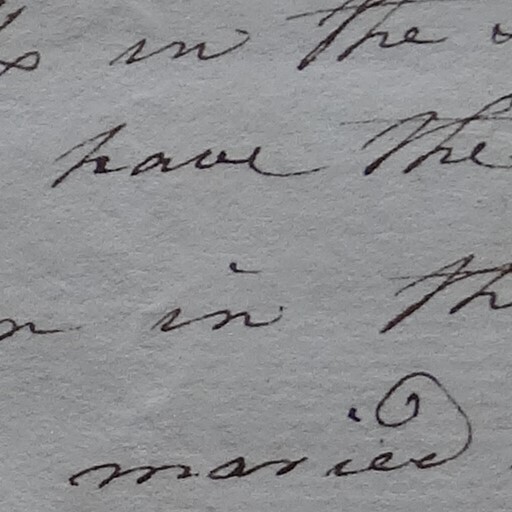 in the
have the
in th
maried